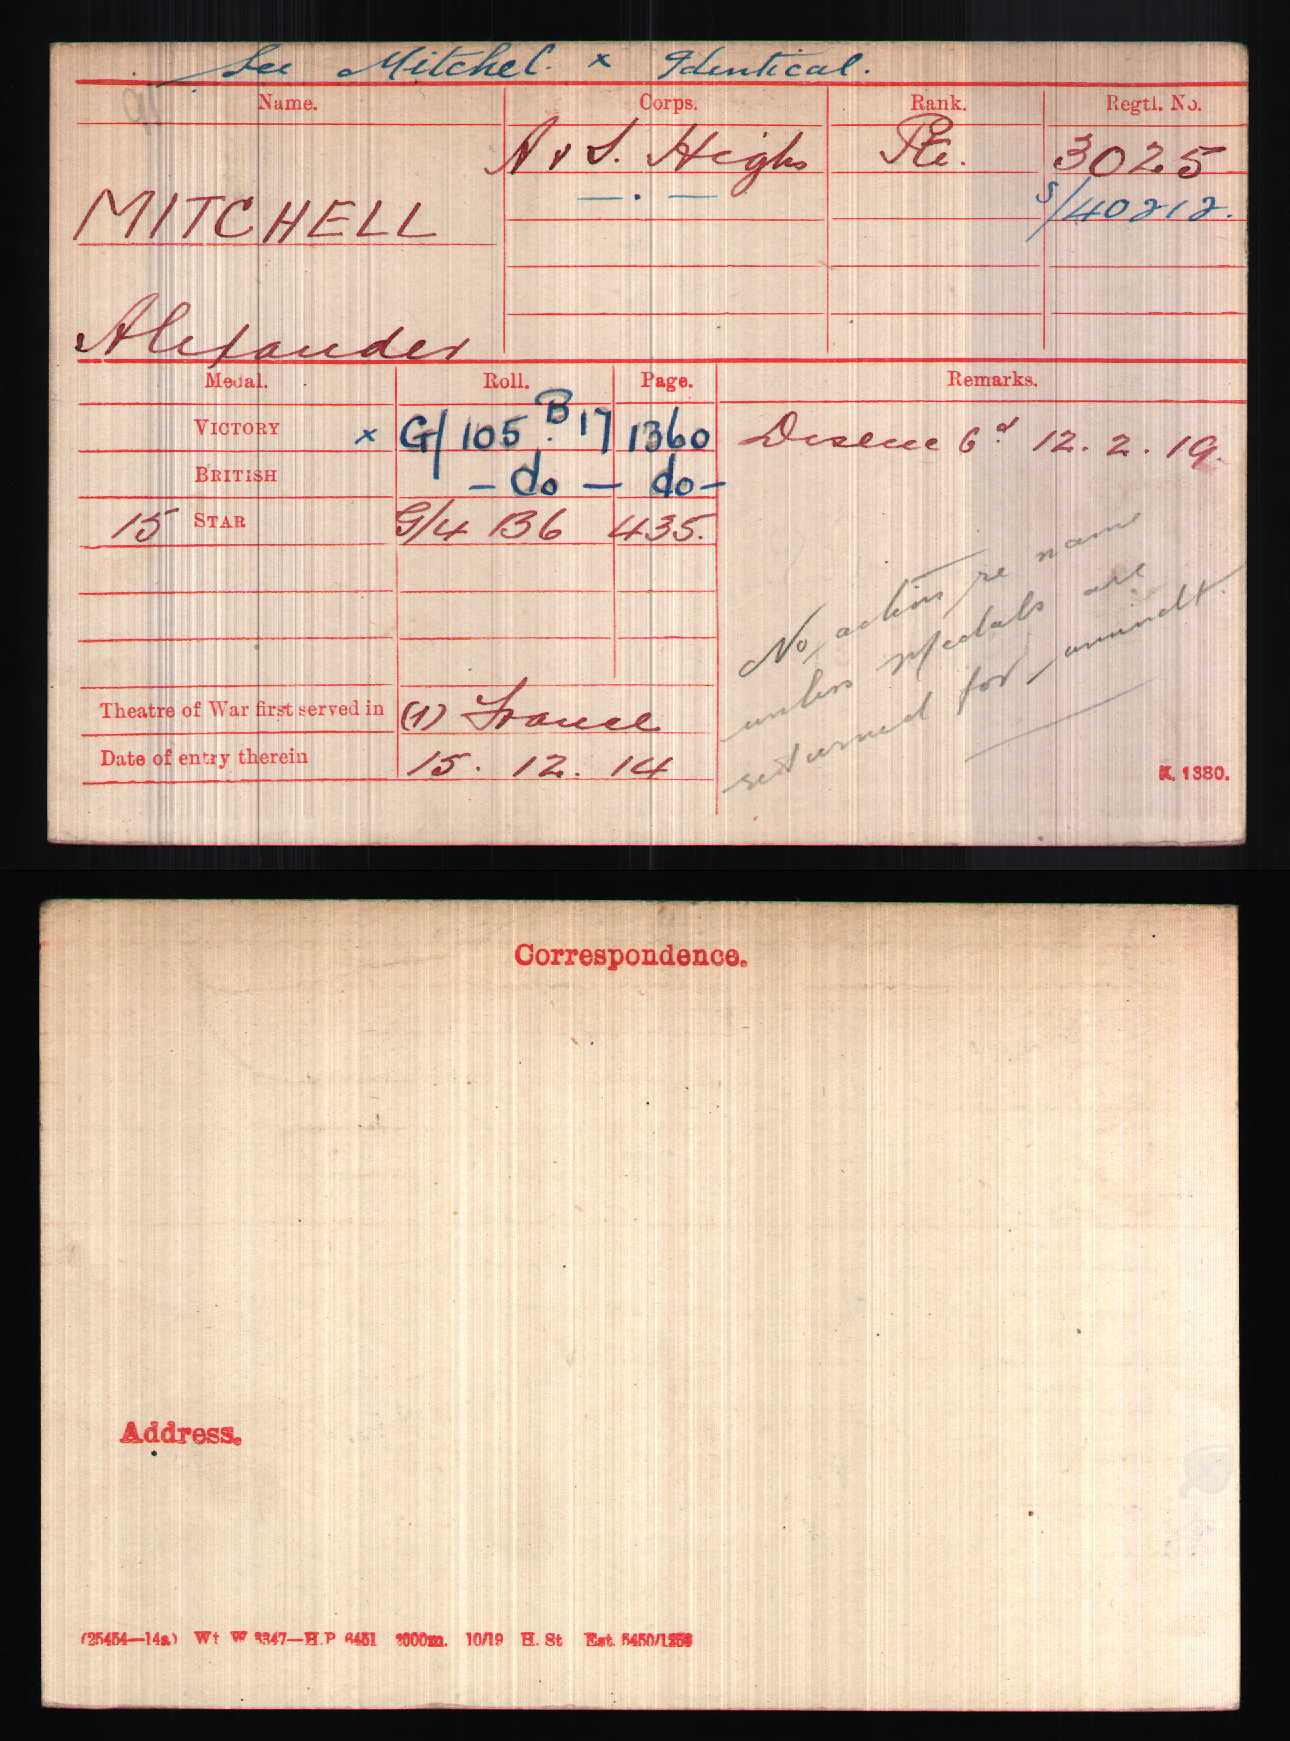 See Mitchel. x Identical.
Name. Corps. Rank. Regtl. No.
A & S. Highs Pte. 3025
— . — S/40212.
MITCHELL
Alexander
Medal. Roll. Page. Remarks.
VICTORY x G/105 B. 17 1360 Disem 6d 12. 2. 19.
BRITISH — do — do —
15 STAR G/4 B6 435.
No action re name
unless medals are
returned for amendt.
Theatre of War first served in (1) France
Date of entry therein 15. 12. 14
K. 1380.
Correspondence.
Address.
(25454—14a) Wt W 3347—H.P 6451 2000m. 10/19 H. St Est. 5450/1256